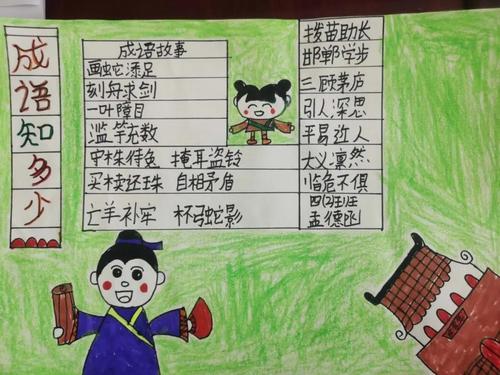 成语知多少
成语故事
画蛇添足
刻舟求剑
一叶障目
滥竽充数
守株待兔 掩耳盗铃
买椟还珠 自相矛盾
亡羊补牢 杯弓蛇影
拨苗助长
邯郸学步
三顾茅庐
引人深思
平易近人
大义凛然
临危不俱
四(2)班
孟德